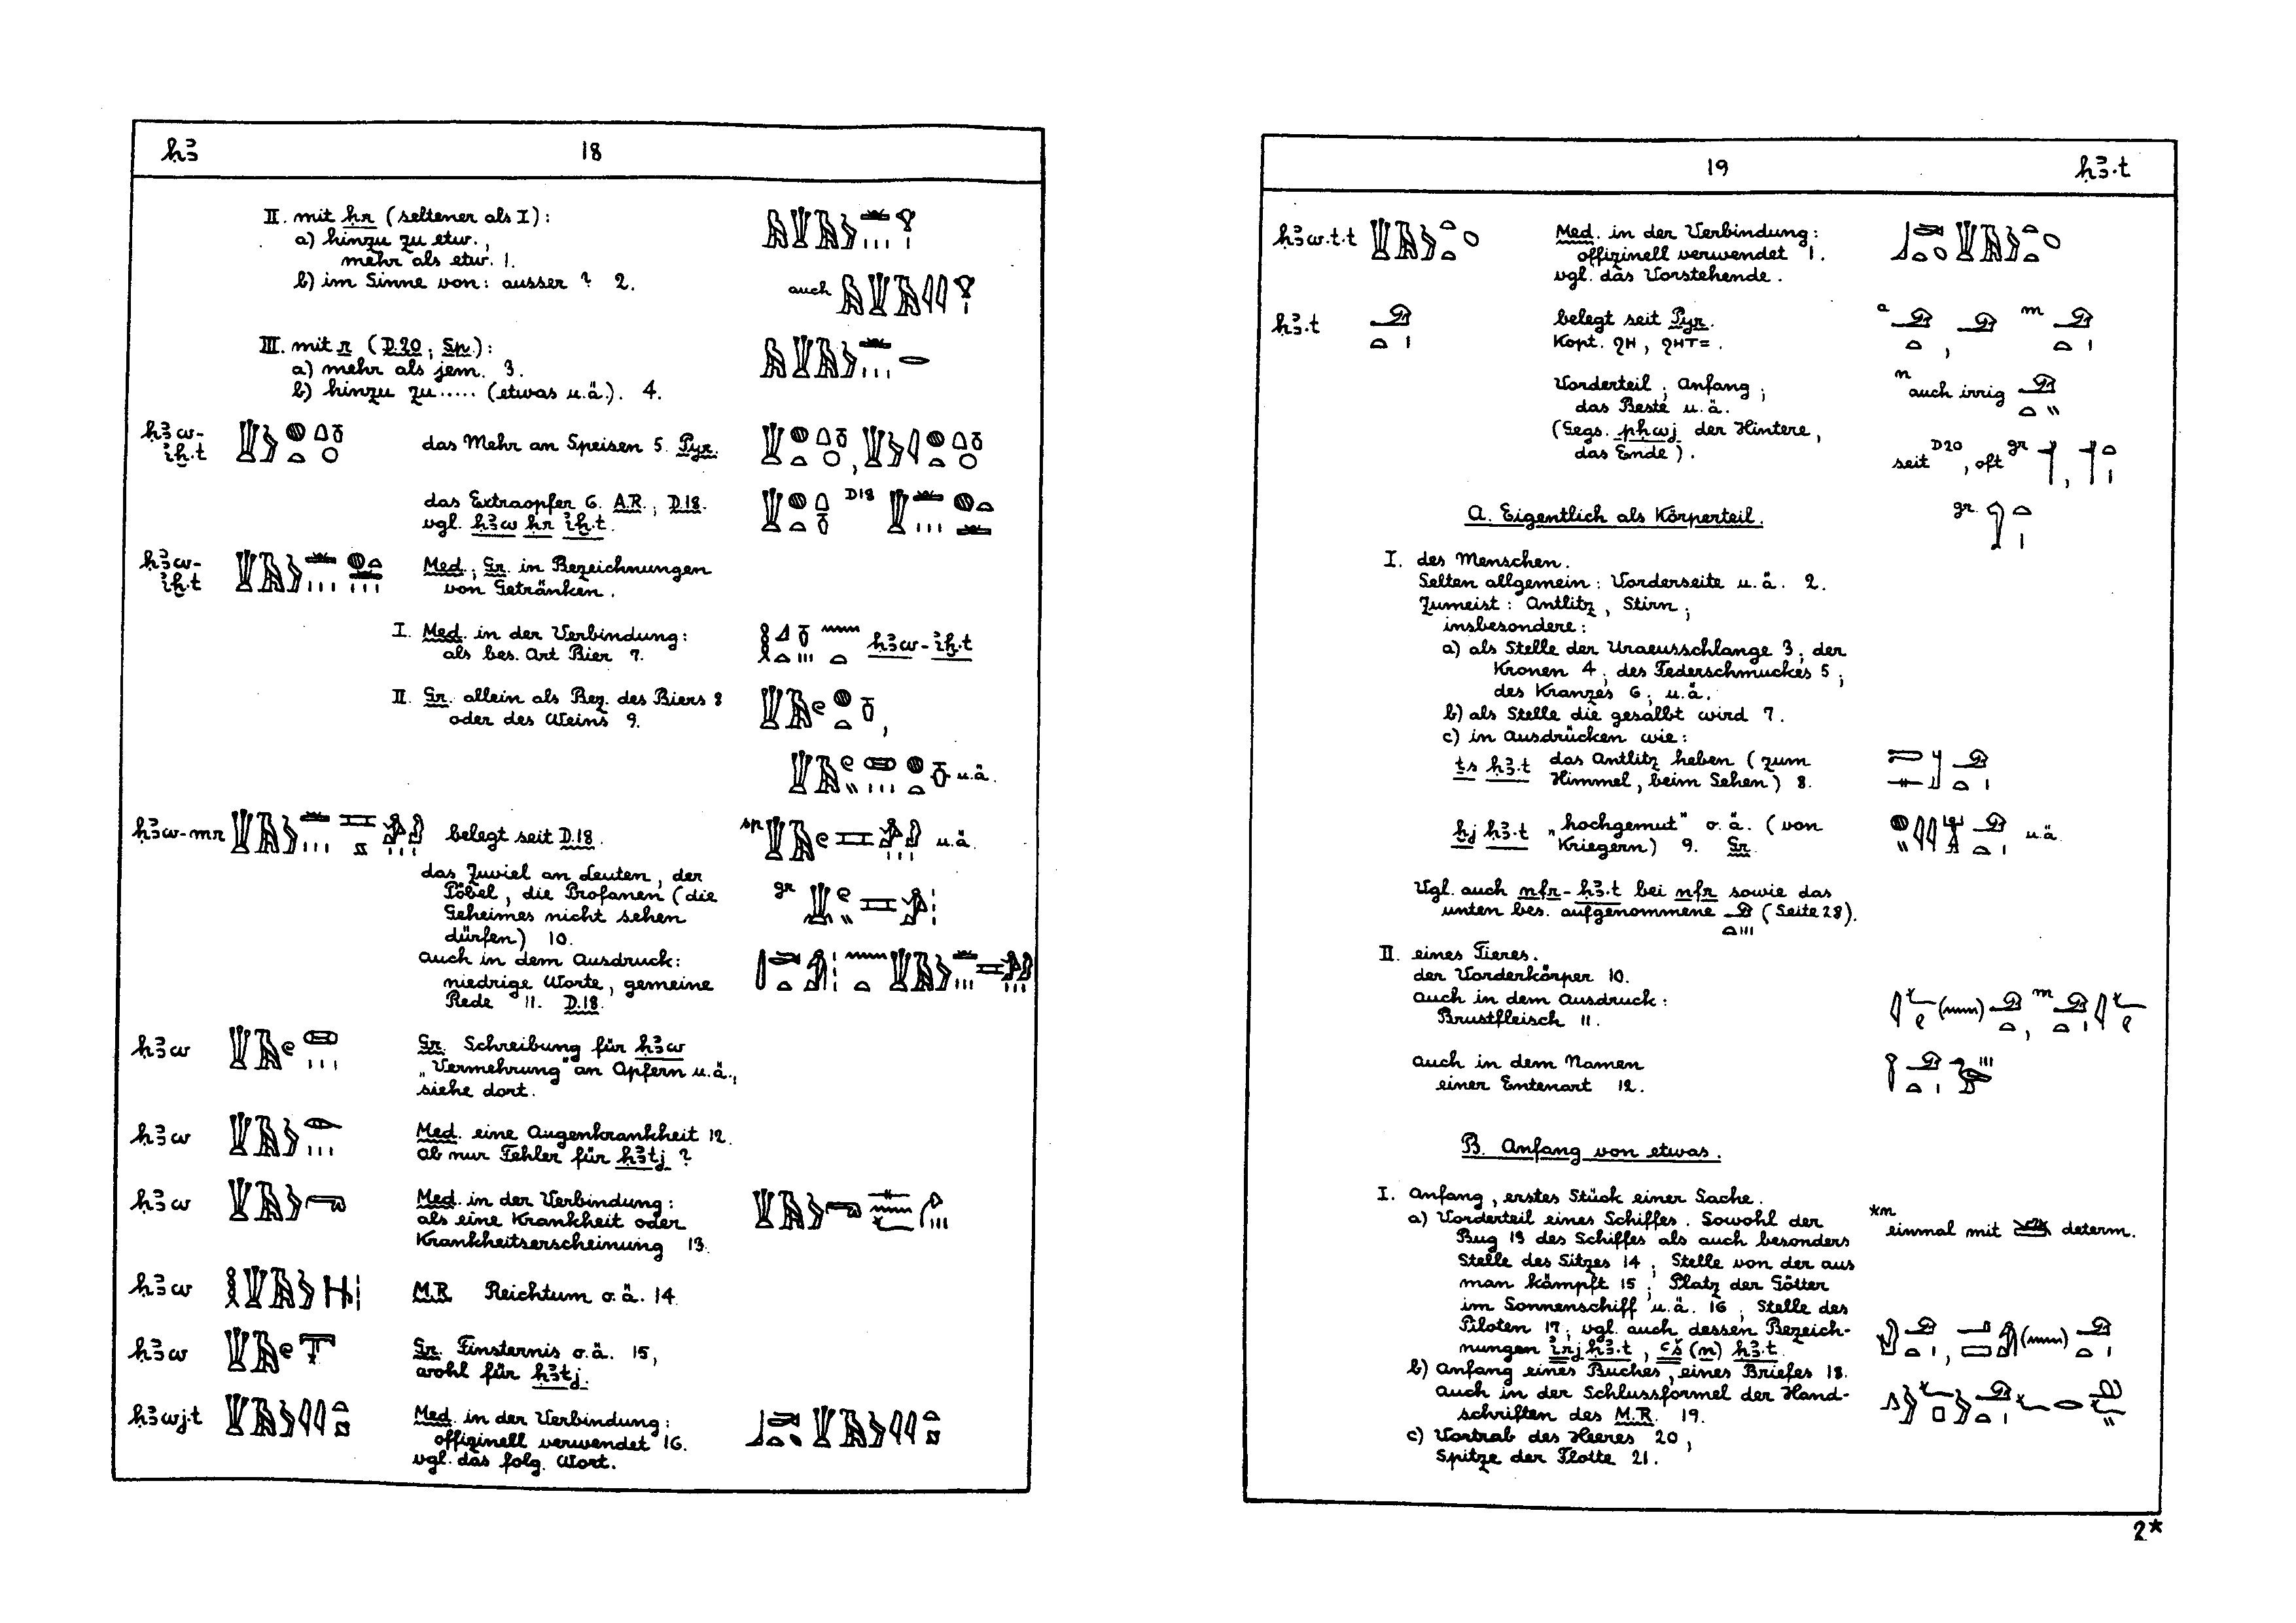 ḥꜣ 18
II. mit ḥr (seltener als I):
a) hinzu zu etw.,
mehr als etw. 1.
b) im Sinne von: ausser ? 2.
auch
III. mit r (D.20; Sp.):
a) mehr als jem. 3.
b) hinzu zu ..... (etwas u.ä.). 4.
ḥꜣw-
iḫ.t
das Mehr an Speisen 5. Pyr.
das Extraopfer 6. A.R.; D.18. D18
vgl. ḥꜣw ḥr iḫ.t.
ḥꜣw-
iḫ.t
Med.; Gr. in Bezeichnungen
von Getränken.
I. Med. in der Verbindung: ḥꜣw-iḫ.t
als bes. Art Bier 7.
II. Gr. allein als Bez. des Biers 8
oder des Weins 9.
u.ä.
ḥꜣw-mr belegt seit D.18. sp u.ä.
das Zuviel an Leuten, der
Pöbel, die Profanen (die gr
Geheimes nicht sehen
dürfen) 10.
auch in dem Ausdruck:
niedrige Worte, gemeine
Rede 11. D.18.
ḥꜣw Gr. Schreibung für ḥꜣw
„Vermehrung" an Opfern u.ä.,
siehe dort.
ḥꜣw Med. eine Augenkrankheit 12.
ob nur Fehler für ḥꜣtj ?
ḥꜣw Med. in der Verbindung:
als eine Krankheit oder
Krankheitserscheinung 13.
ḥꜣw M.R. Reichtum o.ä. 14.
ḥꜣw Gr. Finsternis o.ä. 15,
wohl für ḥꜣtj.
ḥꜣwj.t Med. in der Verbindung:
offizinell verwendet 16.
vgl. das folg. Wort.
19 ḥꜣ.t
ḥꜣw.t.t Med. in der Verbindung:
offizinell verwendet 1.
vgl. das Vorstehende.
ḥꜣ.t belegt seit Pyr. a , m
Kopt. ϩⲏ, ϩⲏⲧ=.
Vorderteil; Anfang; n auch irrig
das Beste u.ä.
(Gegs. pḥwj der Hintere,
das Ende). seit D20, oft gr ,
A. Eigentlich als Körperteil. gr.
I. des Menschen.
Selten allgemein: Vorderseite u.ä. 2.
Zumeist: Antlitz, Stirn;
insbesondere:
a) als Stelle der Uraeusschlange 3; der
Kronen 4; des Federschmuckes 5;
des Kranzes 6; u.ä.
b) als Stelle die gesalbt wird 7.
c) in Ausdrücken wie:
ṯs ḥꜣ.t das Antlitz heben (zum
Himmel, beim Sehen) 8.
ḫj ḥꜣ.t „hochgemut" o.ä. (von u.ä.
Kriegern) 9. Gr.
Vgl. auch nfr-ḥꜣ.t bei nfr sowie das
unten bes. aufgenommene (Seite 28).
II. eines Tieres.
der Vorderkörper 10.
auch in dem Ausdruck: , m
Brustfleisch 11.
auch in dem Namen
einer Entenart 12.
B. Anfang von etwas.
I. Anfang, erstes Stück einer Sache.
a) Vorderteil eines Schiffes. Sowohl der *m einmal mit determ.
Bug 13 des Schiffes als auch besonders
Stelle des Sitzes 14; Stelle von der aus
man kämpft 15; Platz der Götter
im Sonnenschiff u.ä. 16; Stelle des
Piloten 17; vgl. auch dessen Bezeich-
nungen irj ḥꜣ.t, ꜥš (n) ḥꜣ.t.
b) Anfang eines Buches, eines Briefes 18.
auch in der Schlussformel der Hand-
schriften des M.R. 19.
c) Vortrab des Heeres 20,
Spitze der Flotte 21.
2*